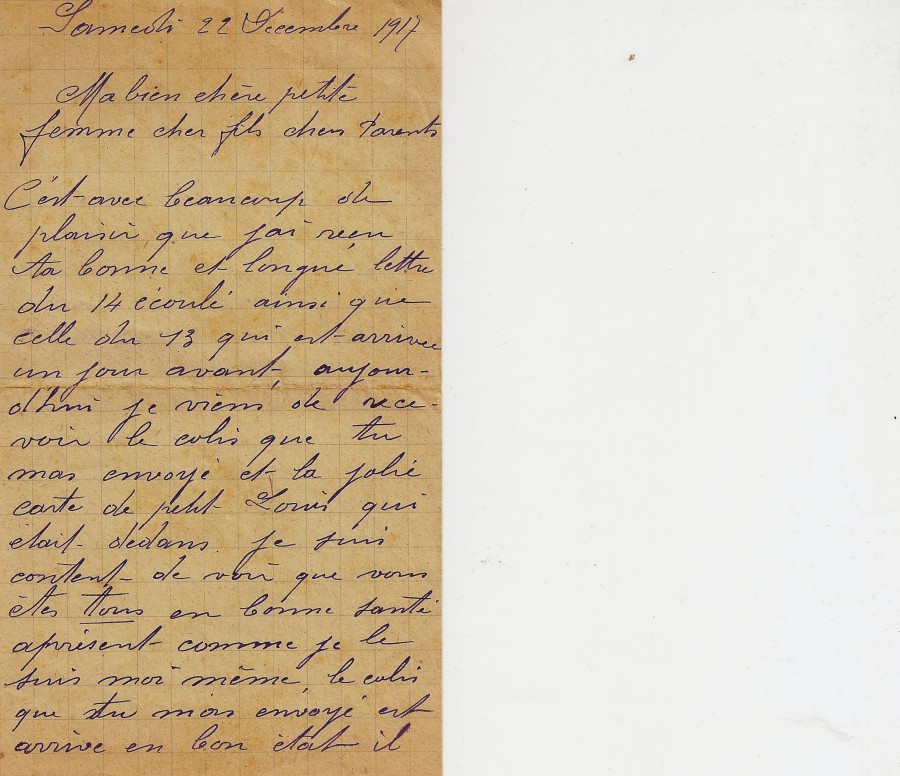 Samedi 22 Decembre 1917
Ma bien chère petite
femme cher fils chers Parents
C'est avec beaucoup de
plaisir que j'ai recu
ta bonne et longue lettre
du 14 écoulé ainsi que
celle du 13 qui est arrivee
un jour avant, aujour-
d'hui je viens de rece-
voir le colis que tu
mas envoyé et la jolie
carte de petit Louis qui
était dedans. je suis
content de voir que vous
êtes tous en bonne santé
apresent comme je le
suis moi même, le colis
que tu mas envoyé est
arrive en bon état il